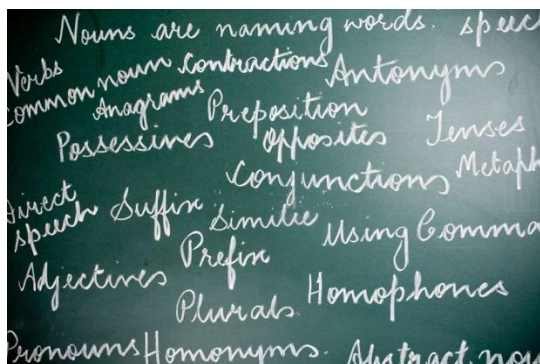 Nouns are naming words. speec
Verbs
Common noun Contractions Antonyms
Anagrams Preposition
Possessives Opposites Tenses
Conjunctions Metaph
Direct
speech Suffix Similie Using Comma
Prefix
Adjectives
Plurals Homophones
Pronouns Homonyms. Abstract nou